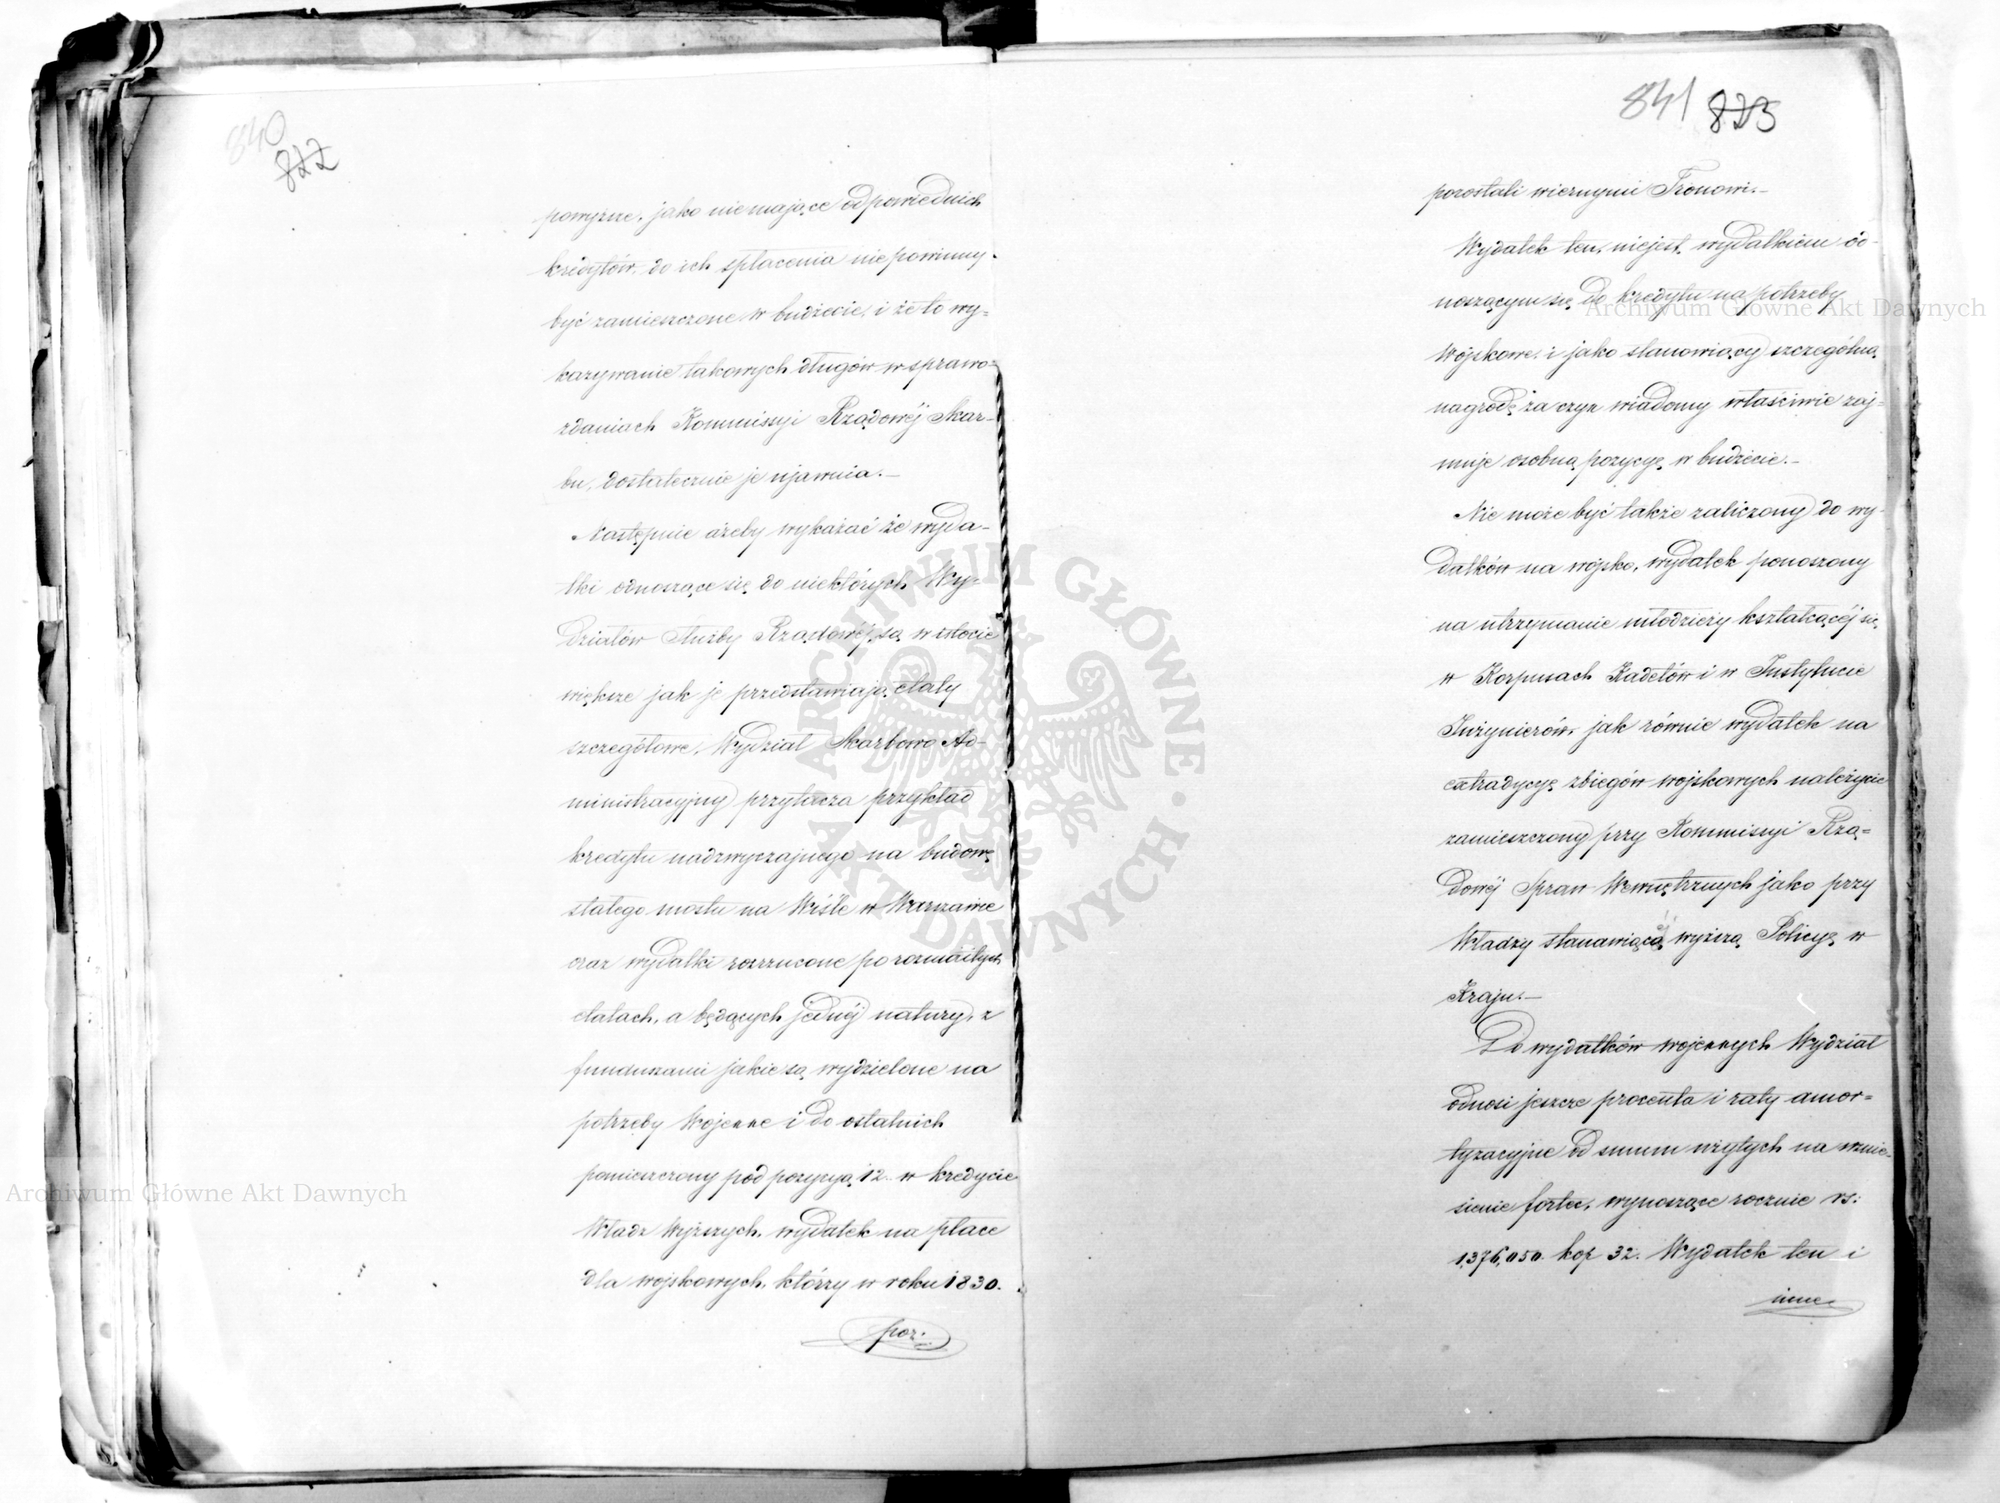 840
822
powyższe, jako niemające odpowiednich
kredytów, do ich spłacenia niepowinny
być zamieszczone w budżecie, i że to wy=
kazywanie takowych długów w sprawo=
zdaniach Kommissyi Rządowéj Skar=
bu, dostatecznie je ujawnia.—
Następnie ażeby wykazać że wyda-
tki odnoszące się do niektórych Wy=
działów Służby Rządowéj, są w istocie
większe jak je przedstawiają etaty
szczegółowe, Wydział Skarbowo Ad-
ministracyjny przytacza przykład
kredytu nadzwyczajnego na budowę
stałego mostu na Wiśle w Warszawie
oraz wydatki rozrzucone po rozmaitych
etatach, a będących jednéj natury, z
funduszami jakie są wydzielone na
potrzeby Wojenne i do ostatnich
pomieszczony pod pozycyą 12. w kredycie
Władz Wyższych, wydatek na płace
dla wojskowych, którzy w roku 1830.
poz.
841 823
pozostali wiernymi Tronowi.—
Wydatek ten, niejest wydatkiem od-
noszącym się do kredytu na potrzeby
Wojskowe, i jako stanowiący szczególną
nagrodę za czyn wiadomy właściwie zaj-
muje osobną pozycyę w budżecie.—
Nie może być także zaliczony do wy-
datków na wojsko, wydatek ponoszony
na utrzymanie młodzieży kształcącéj się
w Korpusach Kadetów i w Instytucie
Inżynierów, jak równie wydatek na
extradycyę zbiegów wojskowych należycie
zamieszczony przy Kommissyi Rzą=
dowéj Spraw Wewnętrznych jako przy
Władzy stanawiącéj wyższą Policyę w
Kraju.—
Do wydatków wojennych Wydział
odnosi jeszcze procenta i raty amor=
tyzacyjne od summ użytych na wznie-
sienie fortec, wynoszące rocznie rs:
1,376,050. kop 32. Wydatek ten i
inne
Archiwum Główne Akt Dawnych
Archiwum Główne Akt Dawnych
ARCHIWUM GŁÓWNE · AKT DAWNYCH ·